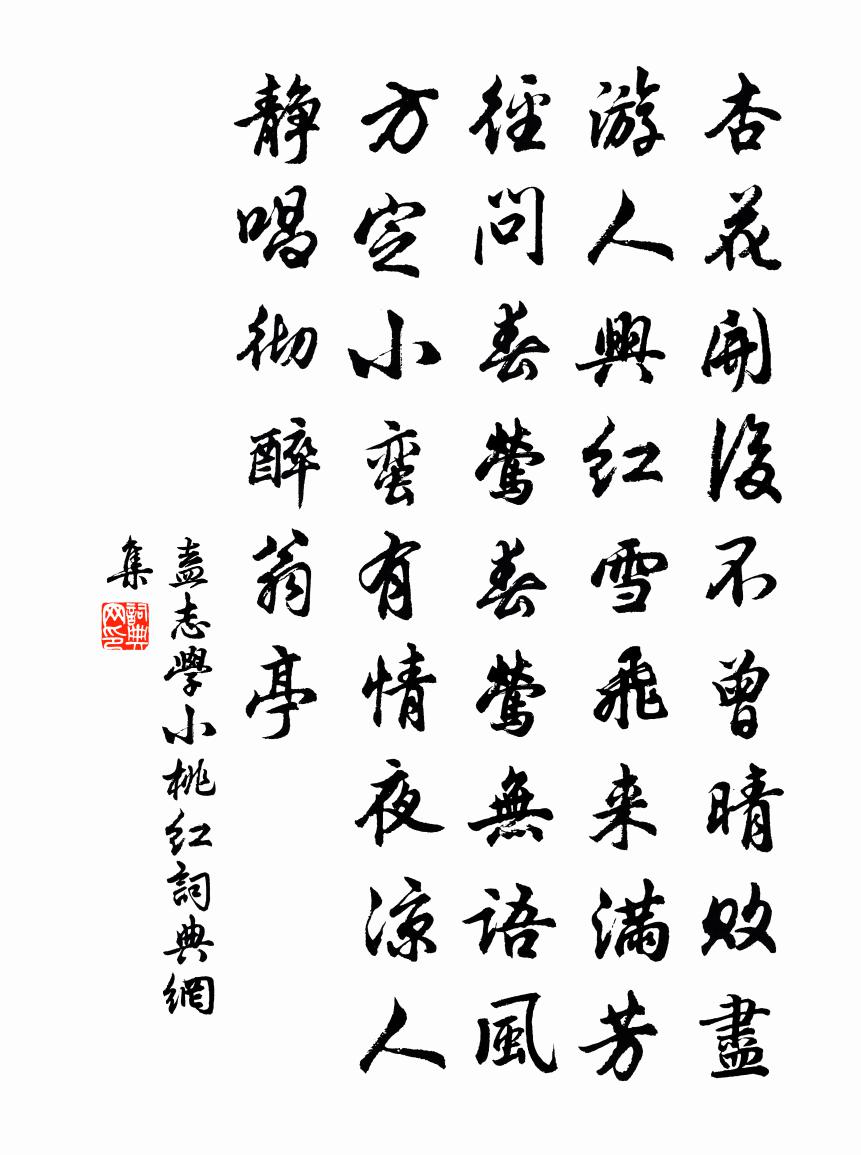 杏花開後不曾晴敗盡
游人興紅雪飛来滿芳
徑問春鶯春鶯無語風
方定小蛮有情夜凉人
静唱彻醉翁亭
盍志學小桃红詞典網
集
詞典
网印